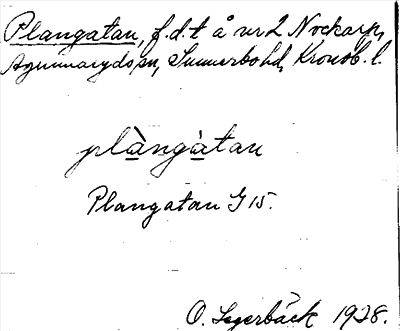 Plangatan, f.d.t å nr 2 Nockarp,
Agunnarydssn, Sunnerbohd, Kronob. l.
plàngàtan
Plangatan G 15.
O. Segerbäck 1928.